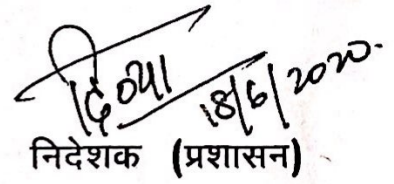 दिव्या
18/6/2020
निदेशक (प्रशासन)